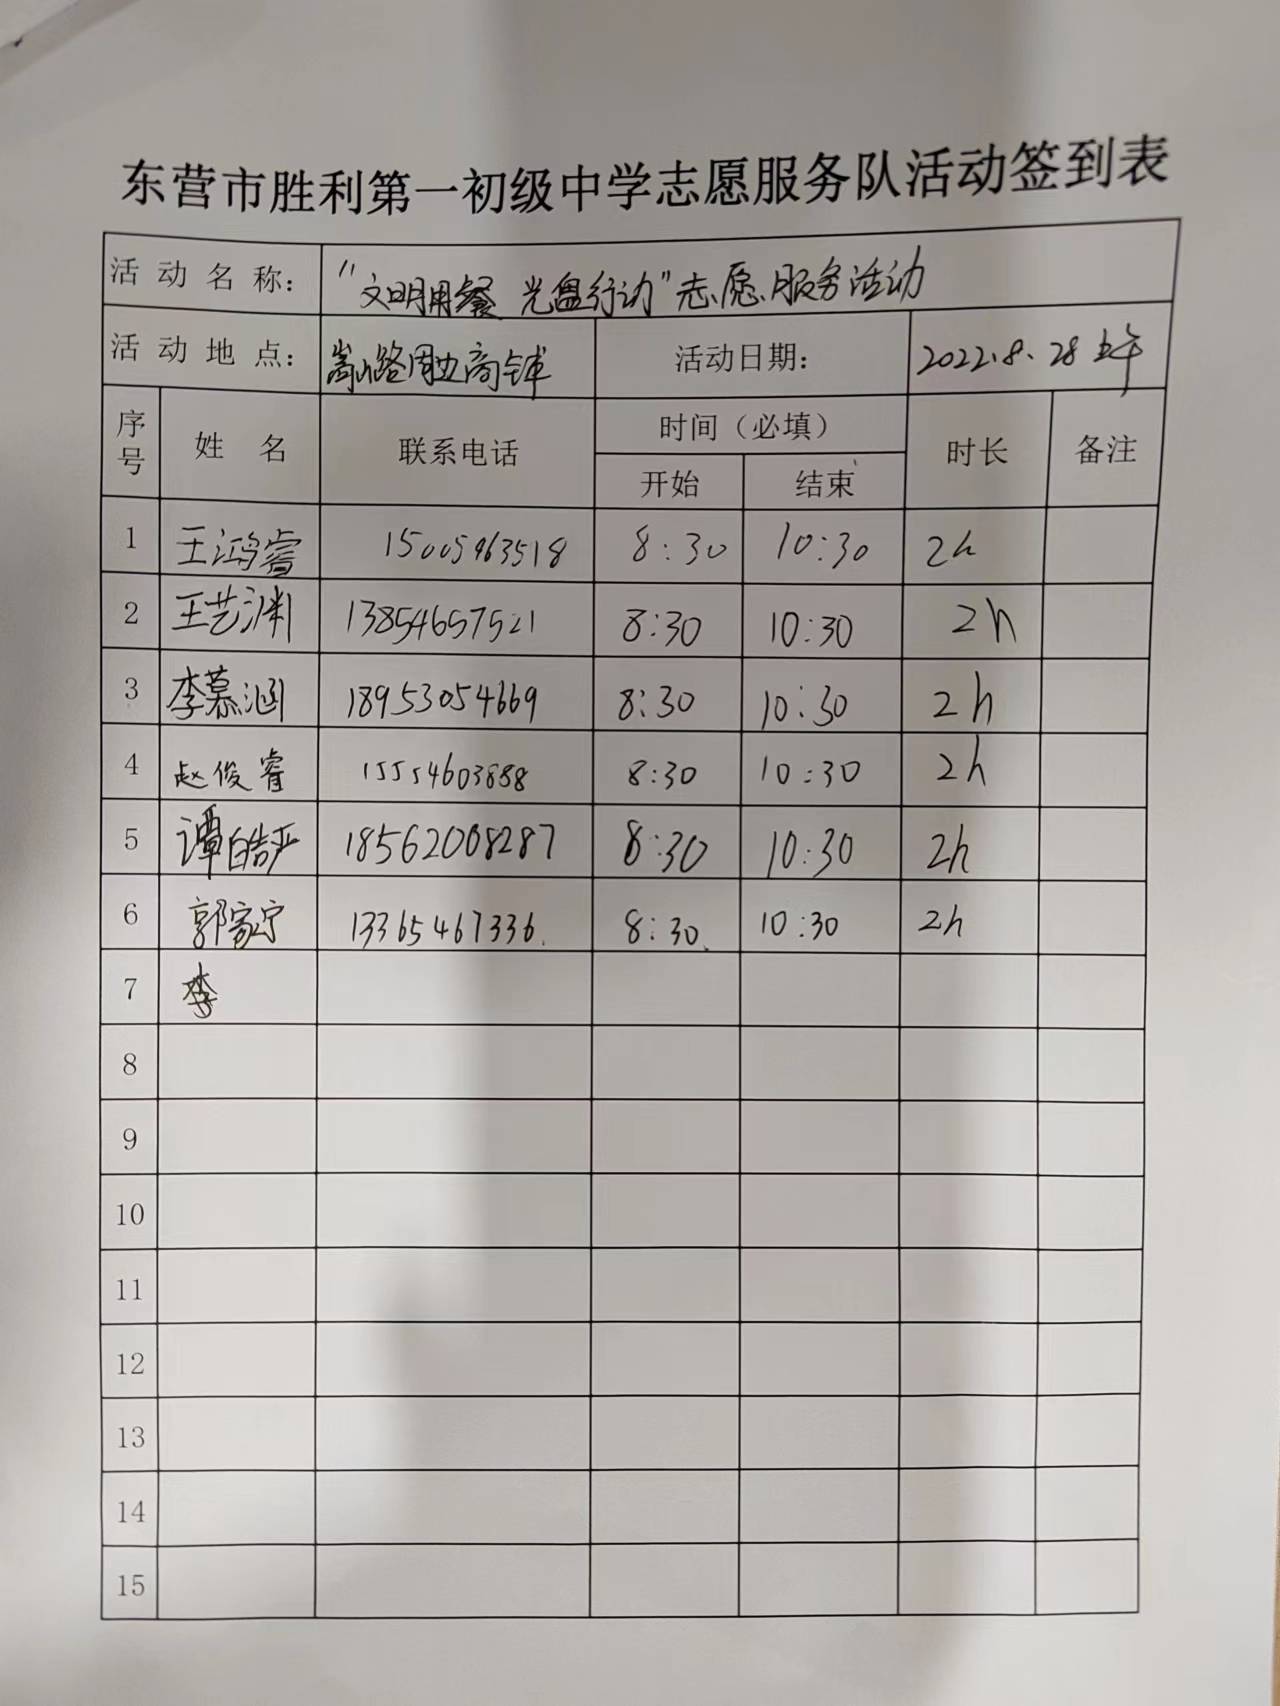 东营市胜利第一初级中学志愿服务队活动签到表
活动名称： "文明用餐 光盘行动"志愿服务活动
活动地点： 嵩山路周边商铺 活动日期： 2022.8.28 上午
序号 姓名 联系电话 时间（必填） 时长 备注
开始 结束
1 王鸿睿 15005463518 8:30 10:30 2h
2 王艺渊 13854657521 8:30 10:30 2h
3 李慕涵 18953054669 8:30 10:30 2h
4 赵俊睿 15554603888 8:30 10:30 2h
5 谭皓严 18562008287 8:30 10:30 2h
6 郭家宁 13365467336. 8:30. 10:30 2h
7 李
8
9
10
11
12
13
14
15